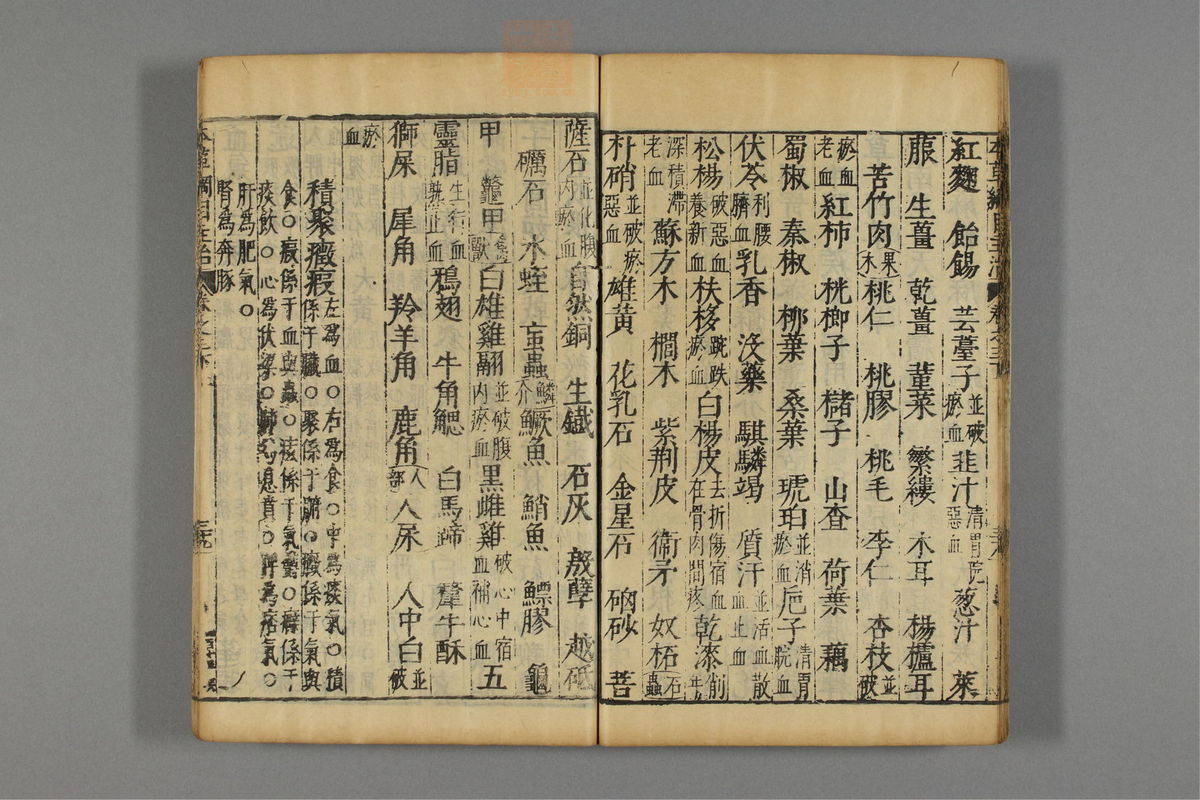 紅麴 飴餳 芸薹子並破瘀血韭汁清胃脘惡血葱汁 萊
菔 生薑 乾薑 菫菜 蘩縷 木耳 楊櫨耳
苦竹肉果木桃仁 桃膠 桃毛 李仁 杏枝並破
瘀血老血紅柿 桄榔子 櫧子 山査 荷葉 藕
蜀椒 秦椒 桺葉 桑葉 琥珀並消瘀血巵子清胃脘血
茯苓利腰臍血乳香 沒藥 騏驎竭 質汗並活血散血止血
松楊破惡血養新血扶栘踠跌瘀血白楊皮去折傷宿血在骨肉間疼乾漆削年
深積滯老血 蘇方木 櫚木 紫荆皮 衛矛 奴柘石蟲
朴硝並破瘀惡血雄黃 花乳石 金星石 硇砂 菩
薩石並化腹內瘀血自然銅 生鐵 石灰 殷孽 越砥
礪石 水蛭 䖟蟲鱗介鱖魚 鮹魚 鰾膠 龜
甲 鼈甲禽獸白雄雞翮並破腹內瘀血黑雌雞破心中宿血補心血五
靈脂生行血熟止血鴉翅 牛角䚡 白馬蹄 犛牛酥
獅屎 犀角 羚羊角 鹿角人部人尿 人中白並破
瘀血
積聚癥瘕左爲血○右爲食○中爲痰氣○積係于臟○聚係于腑○癥係于氣與
食○瘕係于血與蟲○痃係于氣鬱○癖係于
痰飲○心爲伏梁○肺爲息賁○脾爲痞氣○
肝爲肥氣○
腎爲奔豚